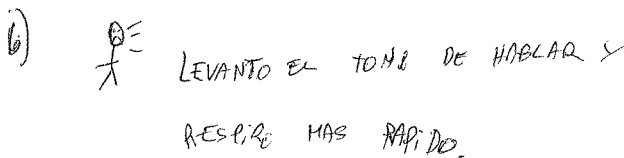 6) LEVANTO EL TONO DE HABLAR Y
RESPIRO MAS RAPIDO.